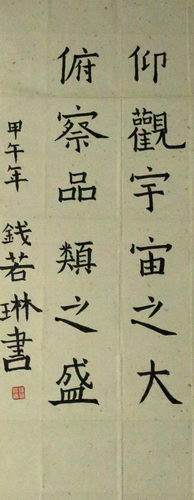 仰觀宇宙之大
俯察品類之盛
甲午年 錢若琳書